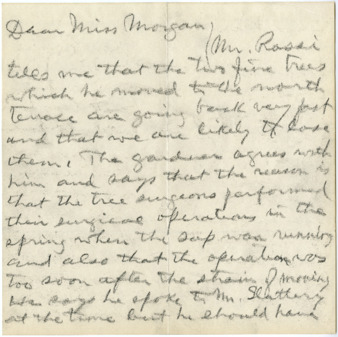 Dear Miss Morgan,
Mr. Rossi
tells me that the two fine trees
which he moved to the north
terrace are going back very fast
and that we are likely to lose
them. The gardener agrees with
him and says that the reason is
that the tree surgeons performed
their surgical operations in the
spring when the sap was running
and also that the operation was
too soon after the strain of moving
He says he spoke to Mr. Slattery
at the time but he should have